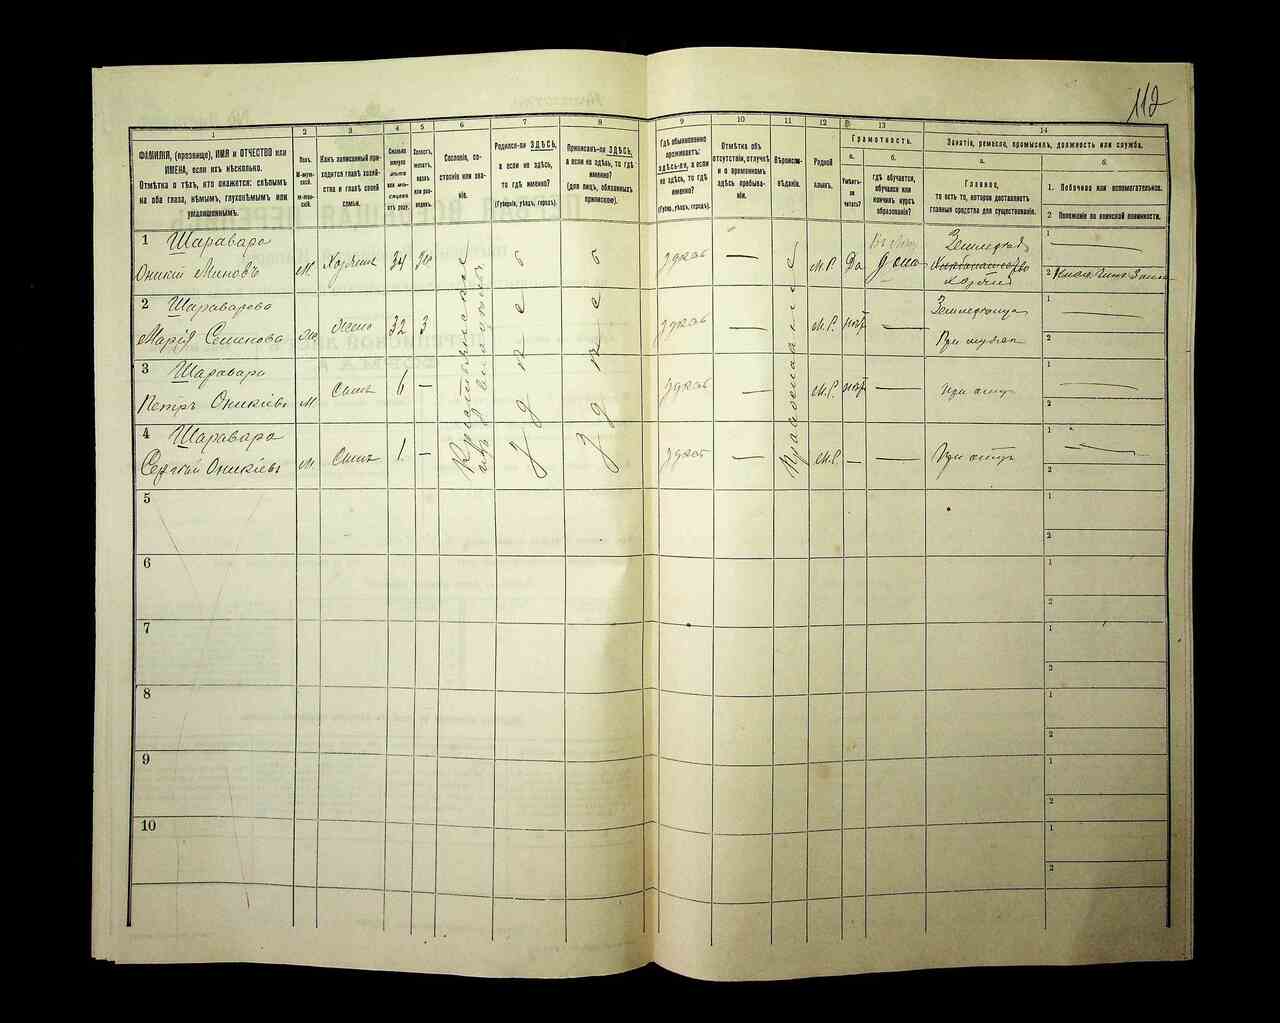 112
1
ФАМИЛІЯ, (прозвище), ИМЯ и ОТЧЕСТВО или
ИМЕНА, если ихъ нѣсколько.
Отмѣтка о тѣхъ, кто окажется: слѣпымъ
на оба глаза, нѣмымъ, глухонѣмымъ или
умалишеннымъ.
2
Полъ.
М-мужской.
Ж-женскій.
3
Какъ записанный приходится главѣ хозяйства и главѣ своей
семьи.
4
Сколько
минуло
лѣтъ
или мѣсяцевъ
отъ роду.
5
Холостъ,
женатъ,
вдовъ
или разведенъ.
6
Сословіе, состояніе или званіе.
7
Родился-ли ЗДѢСЬ,
а если не здѣсь,
то гдѣ именно?
(Губернія, уѣздъ, городъ).
8
Приписанъ-ли ЗДѢСЬ,
а если не здѣсь, то гдѣ
именно?
(для лицъ, обязанныхъ
припискою).
9
Гдѣ обыкновенно
проживаетъ:
здѣсь-ли, а если
не здѣсь, то гдѣ
именно?
(Губер., уѣздъ, городъ).
10
Отмѣтка объ
отсутствіи, отлучкѣ
и о временномъ
здѣсь пребываніи.
11
Вѣроисповѣданіе.
12
Родной
языкъ.
13
Грамотность.
а.
Умѣетъ-ли
читать?
б.
гдѣ обучается,
обучался или
кончилъ курсъ
образованія?
14
Занятіе, ремесло, промыселъ, должность или служба.
а.
Главное,
то есть то, которое доставляетъ
главныя средства для существованія.
б.
1. Побочное или вспомогательное.
2 Положеніе по воинской повинности.
1 Шаравара
Оникій М. Хозяинъ 34 М.Р. Да дома
Земледѣл
1
2
2 Шараварова
Марія Семенова Жена 32 З М.Р. нѣт
При мужѣ
1
2
3 Шаравара
Петръ Оникіевъ М Сынъ 6 — М.Р. нѣт — При отцѣ
1
2
4 Шаравара
Сергій Оникіевъ М. Сынъ 1 — М.Р. — При отцѣ
1
2
Крестьянскіе
Здѣсь
Здѣсь
Православные
5
1
2
6
1
2
7
1
2
8
1
2
9
1
2
10
1
2